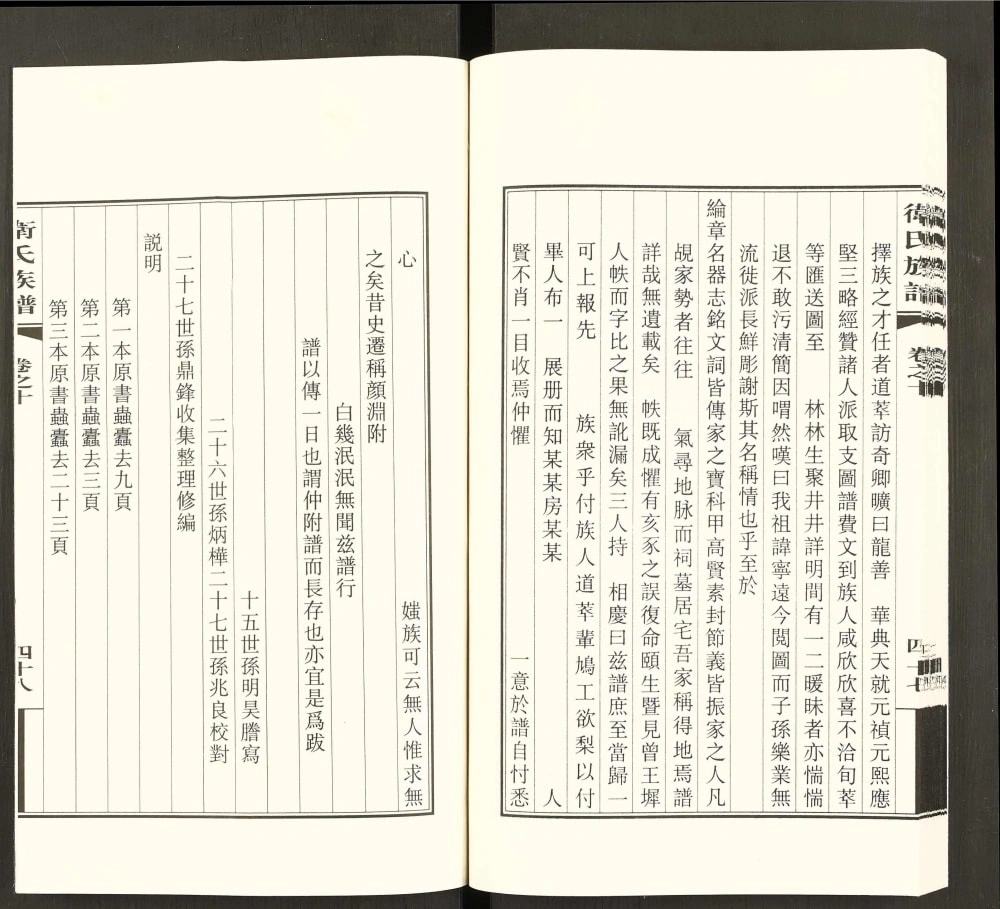 衛氏族譜 卷之十 四十七
擇族之才任者道萃訪奇卿曠曰龍善 華典天就元禎元熙應
堅三略經贊諸人派取支圖譜費文到族人咸欣欣喜不洽旬萃
等匯送圖至 林林生聚井井詳明間有一二暖昧者亦惴惴
退不敢污清簡因喟然嘆曰我祖諱寧遠今閲圖而子孫樂業無
流徙派長鮮彫謝斯其名稱情也乎至於
綸章名器志銘文詞皆傳家之寶科甲高賢素封節義皆振家之人凡
覘家勢者往往 氣尋地脉而祠墓居宅吾家稱得地焉譜
詳哉無遺載矣 帙既成懼有亥豕之誤復命頤生暨見曾王墀
人帙而字比之果無訛漏矣三人持 相慶曰兹譜庶至當歸一
可上報先 族衆乎付族人道萃輩鳩工欲梨以付
畢人布一 展册而知某某房某某 人
賢不肖一目收焉仲懼 一意於譜自忖悉
心 媸族可云無人惟求無
之矣昔史遷稱顔淵附
白幾泯泯無聞兹譜行
譜以傳一日也謂仲附譜而長存也亦宜是爲跋
十五世孫明昊謄寫
二十六世孫炳樺二十七世孫兆良校對
二十七世孫鼎鋒收集整理修編
説明
第一本原書蟲蠹去九頁
第二本原書蟲蠹去三頁
第三本原書蟲蠹去二十三頁
衛氏族譜 卷之十 四十八